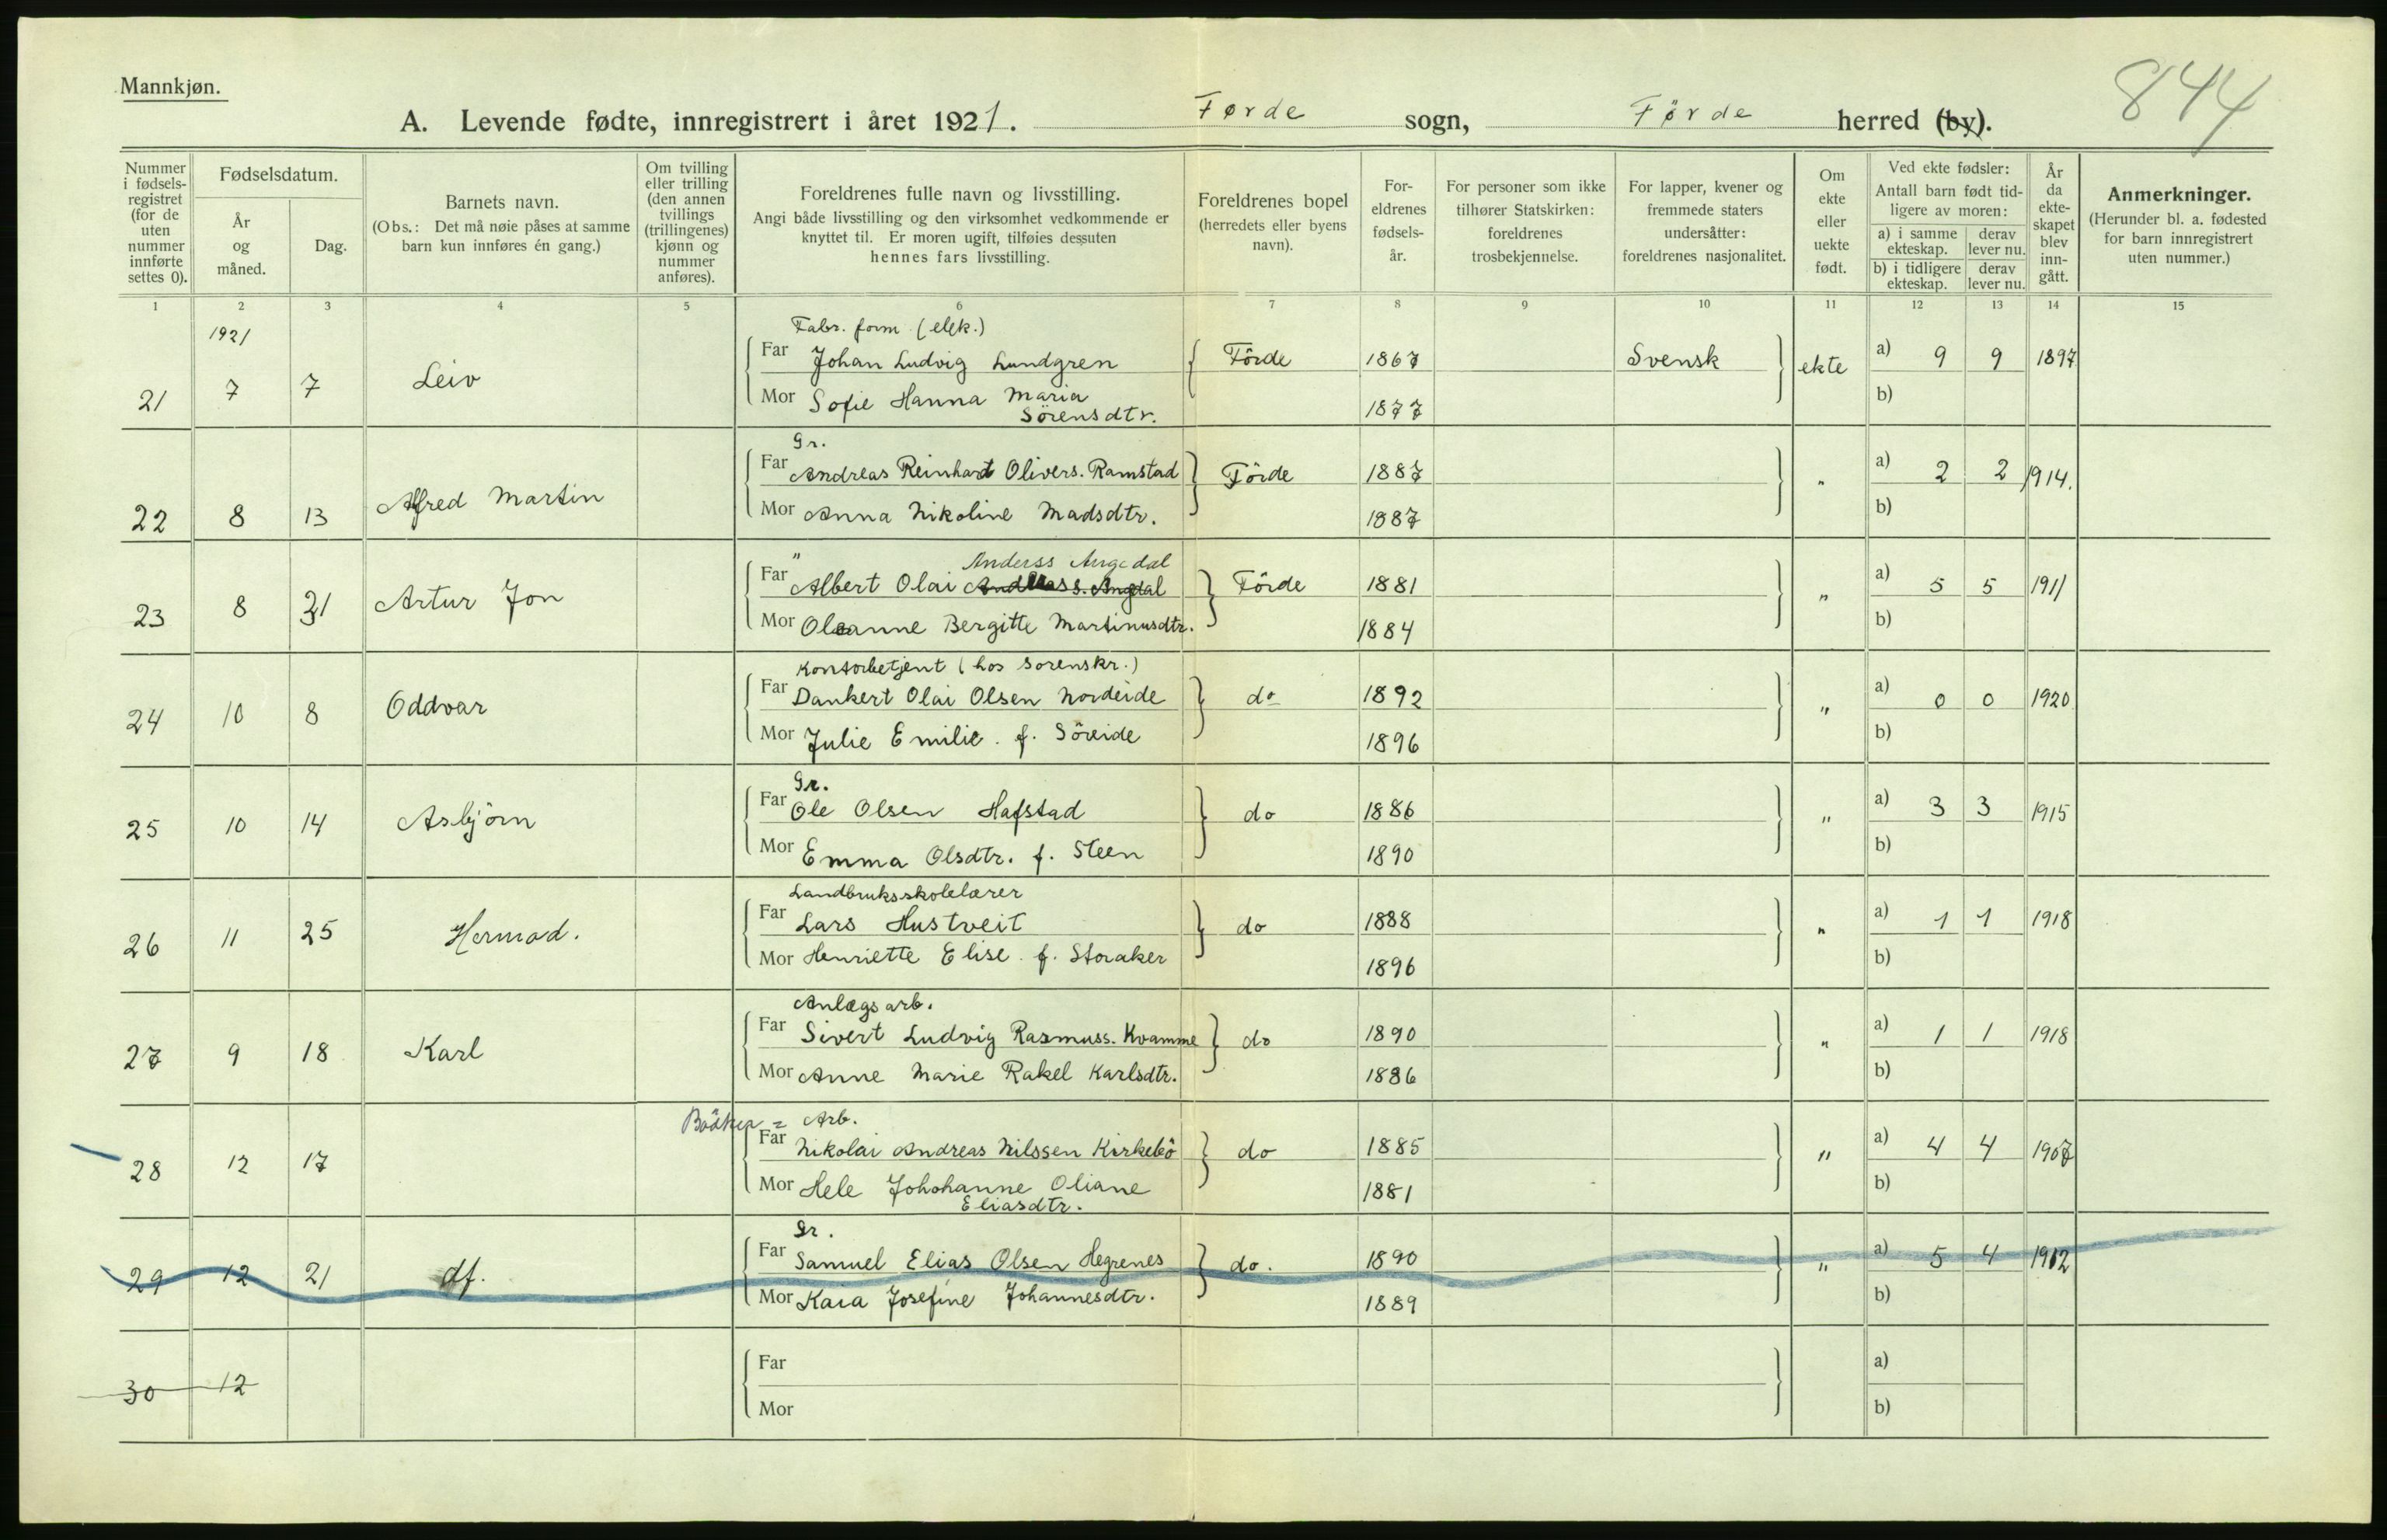 Mannkjøn.
844
A. Levende fødte, innregistrert i året 1921. Førde sogn, Førde herred (by).
Nummer i fødsels-registret (for de uten nummer innførte settes 0).
Fødselsdatum.
År og måned.
Dag.
Barnets navn.
(Obs.: Det må nøie påses at samme barn kun innføres én gang.)
Om tvilling eller trilling (den annen tvillings (trillingenes) kjønn og nummer anføres).
Foreldrenes fulle navn og livsstilling.
Angi både livsstilling og den virksomhet vedkommende er knyttet til. Er moren ugift, tilføies dessuten hennes fars livsstilling.
Foreldrenes bopel (herredets eller byens navn).
For-eldrenes fødsels-år.
For personer som ikke tilhører Statskirken: foreldrenes trosbekjennelse.
For lapper, kvener og fremmede staters undersåtter: foreldrenes nasjonalitet.
Om ekte eller uekte født.
Ved ekte fødsler:
Antall barn født tid-ligere av moren:
a) i samme ekteskap. derav lever nu.
b) i tidligere ekteskap. derav lever nu.
År da ekte-skapet blev inn-gått.
Anmerkninger.
(Herunder bl. a. fødested for barn innregistrert uten nummer.)
1 2 3 4 5 6 7 8 9 10 11 12 13 14 15
1921
Fabr. form. (elek.)
21 7 7 Leiv Far Johan Ludvig Lundgren Förde 1867 Svensk ekte a) 9 9 1897
Mor Sofie Hanna Maria Sörensdtr. 1877 b)
Gr.
22 8 13 Alfred Martin Far Andreas Reinhart Olivers. Ramstad Förde 1887 " a) 2 2 1914.
Mor Anna Nikoline Madsdtr. 1887 b)
" Anderss Angedal
23 8 21 Artur Jon Far Albert Olai Förde 1881 " a) 5 5 1911
Mor Oleanne Bergitte Martinusdtr. 1884 b)
Kontorbetjent (hos Sorenskr.)
24 10 8 Oddvar Far Dankert Olai Olsen Nordeide do 1892 " a) 0 0 1920
Mor Julie Emilie. f. Söreide 1896 b)
Gr.
25 10 14 Asbjörn Far Ole Olsen Hafstad do 1886 " a) 3 3 1915
Mor Emma Olsdtr. f. Steen 1890 b)
Landbruksskolelærer
26 11 25 Hermod. Far Lars Hustveit do 1888 " a) 1 1 1918
Mor Henriette Elise. f. Storaker 1896 b)
Anlægsarb.
27 9 18 Karl Far Sivert Ludvig Rasmuss. Kvamme do 1890 " a) 1 1 1918
Mor Anne Marie Rakel Karlsdtr. 1886 b)
Bödker = Arb.
28 12 17 Far Nikolai Andreas Nilssen Kirkebö do 1885 " a) 4 4 1907
Mor Hele Johohanne Oliane Eliasdtr. 1881 b)
Gr.
29 12 21 df. Far Samuel Elias Olsen Hegrenes do. 1890 " a) 5 4 1912
Mor Kaia Josefine Johannesdtr. 1889 b)
30 12 Far a)
Mor b)